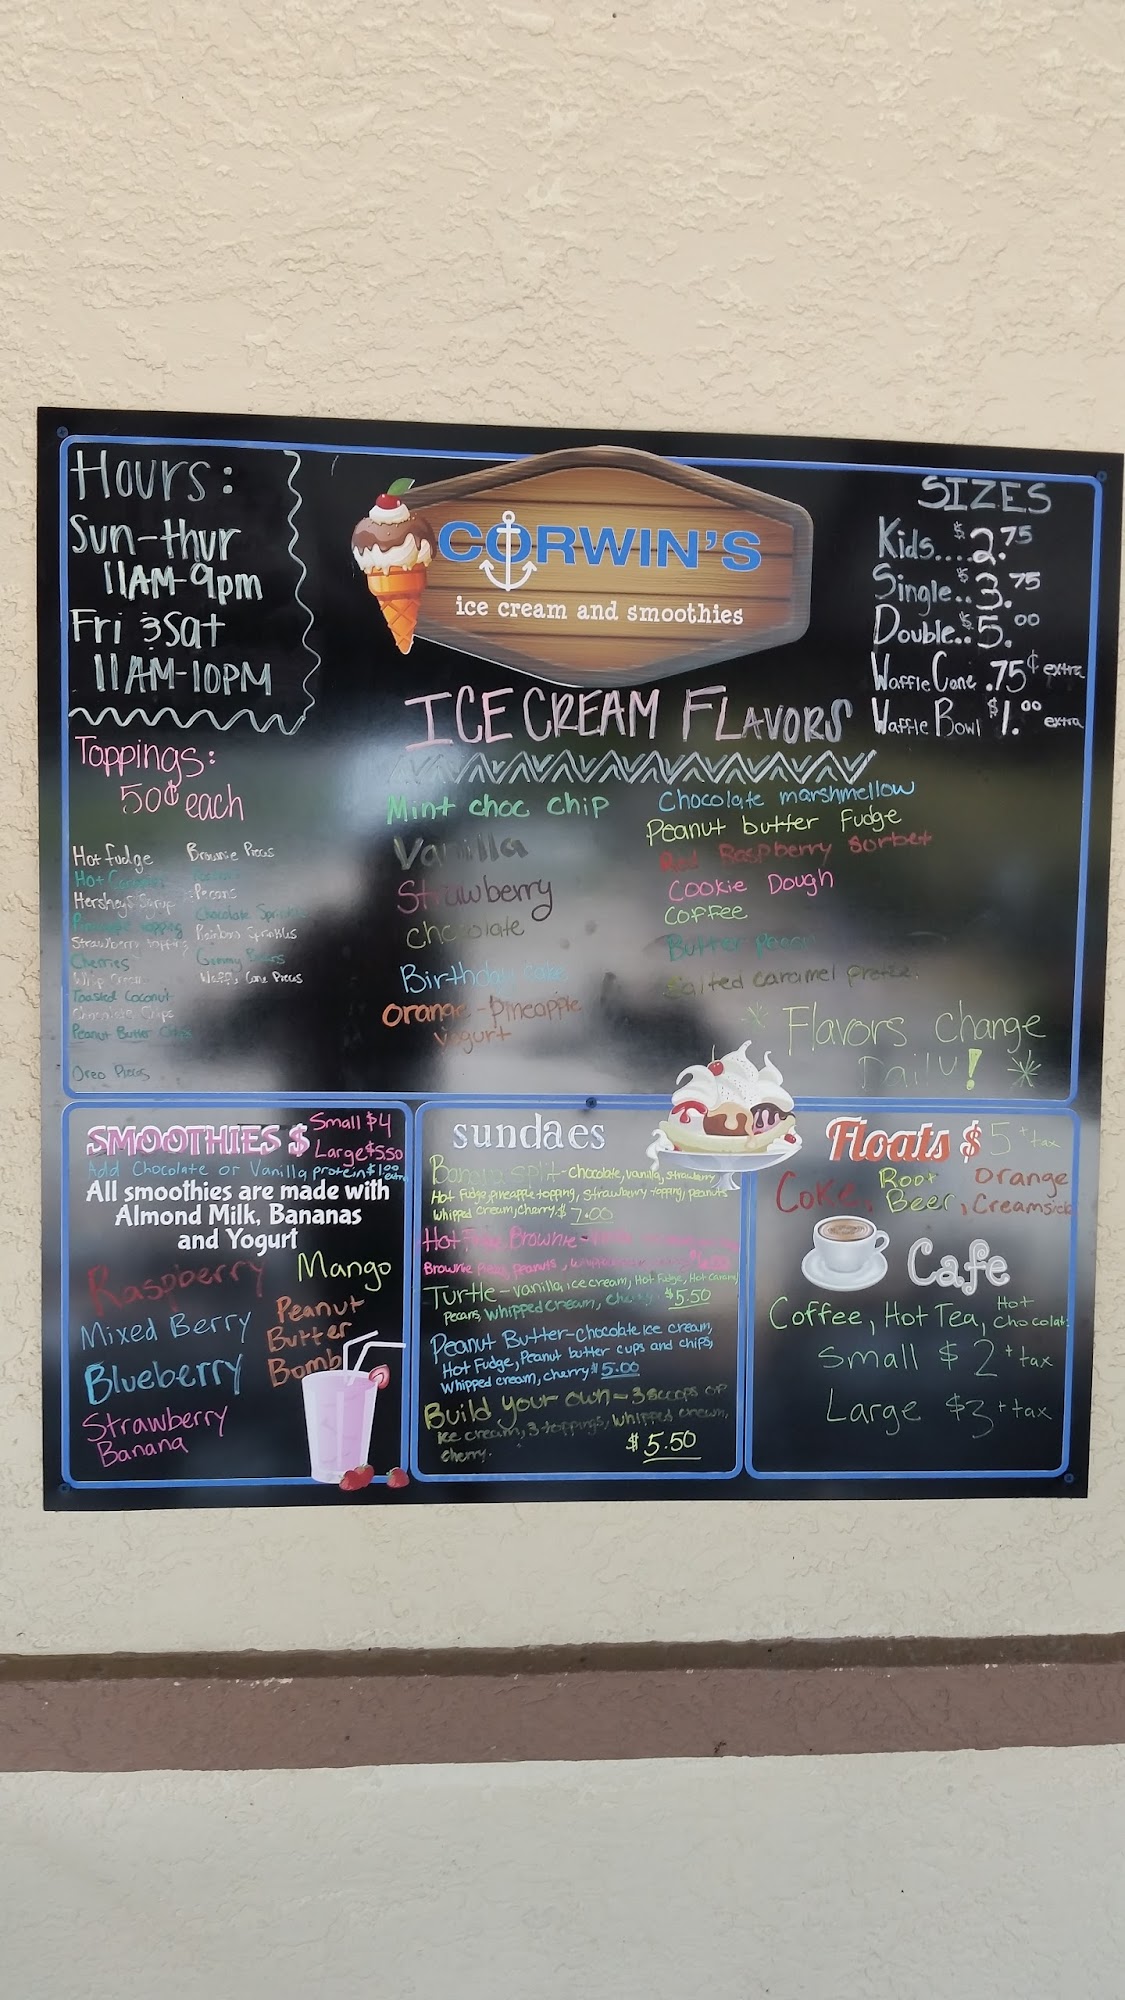 Hours:
Sun-thur
11AM-9pm
Fri & Sat
11AM-10PM
CORWIN'S
ice cream and smoothies
SIZES
Kids.... $2.75
Single.. $3.75
Double.. $5.00
Waffle Cone .75¢ extra
Waffle Bowl $1.00 extra
Toppings:
50¢ each
Hot fudge
Hot Caramel
Hershey's Syrup
Pineapple topping
Strawberry topping
Cherries
Whip Cream
Toasted Coconut
Chocolate Chips
Peanut Butter Chips
Oreo Pieces
Brownie Pieces
Pecans
Chocolate Sprinkles
Rainbow Sprinkles
Gummy Bears
Waffle Cone Pieces
ICE CREAM FLAVORS
Mint choc chip
Vanilla
Strawberry
Chocolate
Birthday cake
Orange-Pineapple
yogurt
Chocolate marshmellow
Peanut butter Fudge
Red Raspberry Sorbet
Cookie Dough
Coffee
Butter Pecan
Salted caramel pretzel
Flavors Change
Daily!
SMOOTHIES $
Small $4
Large $5.50
Add Chocolate or Vanilla protein $1.00 extra
All smoothies are made with
Almond Milk, Bananas
and Yogurt
Raspberry
Mango
Mixed Berry
Peanut
Butter
Bomb
Blueberry
Strawberry
Banana
sundaes
Banana Split-chocolate, vanilla, strawberry
Hot Fudge, pineapple topping, strawberry topping, peanuts
whipped cream, cherry $7.00
Hot Fudge Brownie-
Brownie Pieces, peanuts,
Turtle-vanilla ice cream, Hot Fudge, Hot Caramel
Pecans, whipped cream, cherry $5.50
Peanut Butter-chocolate ice cream,
Hot Fudge, Peanut butter cups and chips,
Whipped cream, cherry $5.00
Build your own- 3 scoops of
ice cream, 3 toppings, whipped cream,
cherry.
$5.50
Floats $5 + tax
Coke, Root Beer, Orange Creamsicle
Cafe
Coffee, Hot Tea, Hot Chocolate
Small $2 + tax
Large $3 + tax